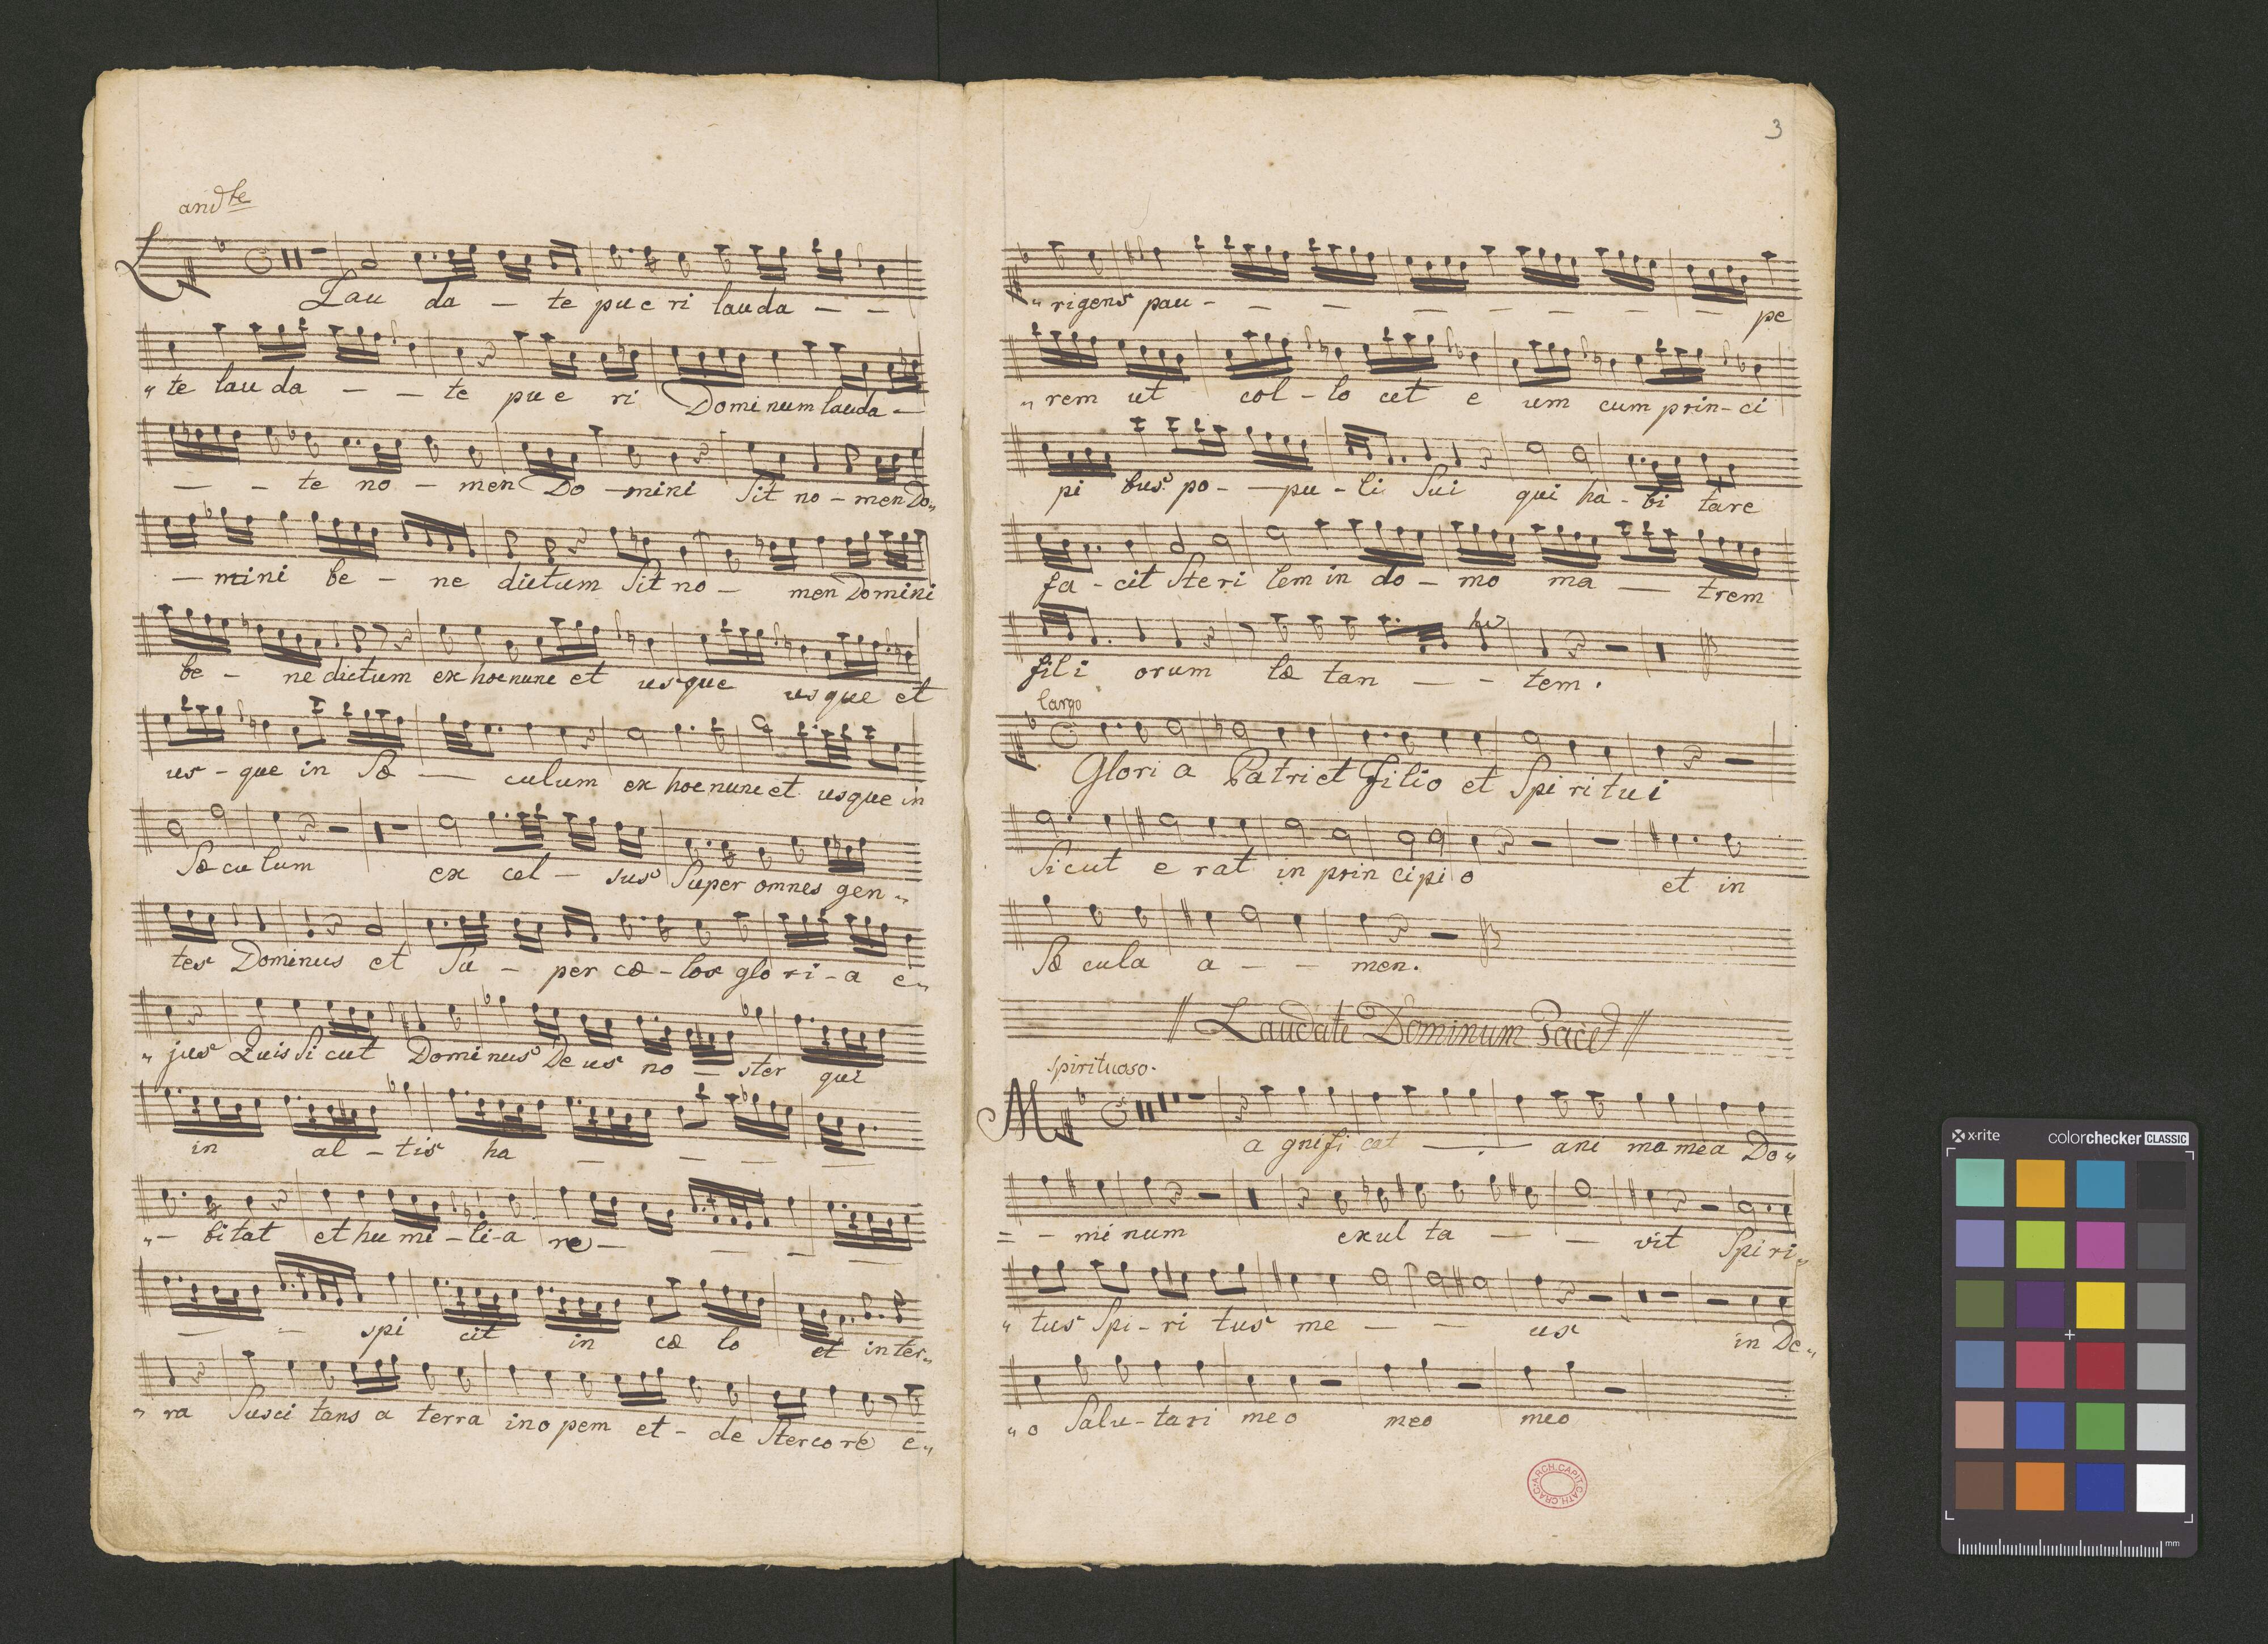 andte
Lau da - te pue ri lauda - -
„ te lau da - - te pu e ri Dominum lauda -
- - te no - men Do - mini Sit no - men Do„
- mini be - ne dictum Sit no - men Domini
be - ne dictum ex hoc nunc et usque usque et
us - que in Sæ - culum ex hoc nunc et usque in
Sæculum ex cel - sus Super omnes gen„
tes Dominus et Su - per cœ - los glo ri - a e„
„ jus Quis Sicut Dominus De us no - ster qui
in al - tis ha - - - - -
„ - bitat et hu mi - li - a re - - - -
- - spi cit in cœ lo et in ter„
„ ra Susci tans a terra inopem et - de Stercore e„
3
„ rigens pau - - - - - - - pe
„ rem ut col - lo cet e um cum prin - ci
pi bus po - - pu - li Sui qui ha - bi tare
fa - cit Ste ri lem in do - mo ma - trem
fili orum læ tan - - tem.
largo
Glori a Patri et Filio et Spi ri tui
Sicut e rat in prin cipi o et in
Sæ cula a - - men.
// Laudate Dominum Tacet //
Spirituoso.
M a gnifi cat - - ani ma mea Do„
= - mi num exul ta - - vit Spi ri„
„ tus Spi - ri tus me - - us in De„
„ o Salu - tari meo meo meo
ARCH. CAPIT. CATH. CRAC.
x-rite colorchecker CLASSIC
mm